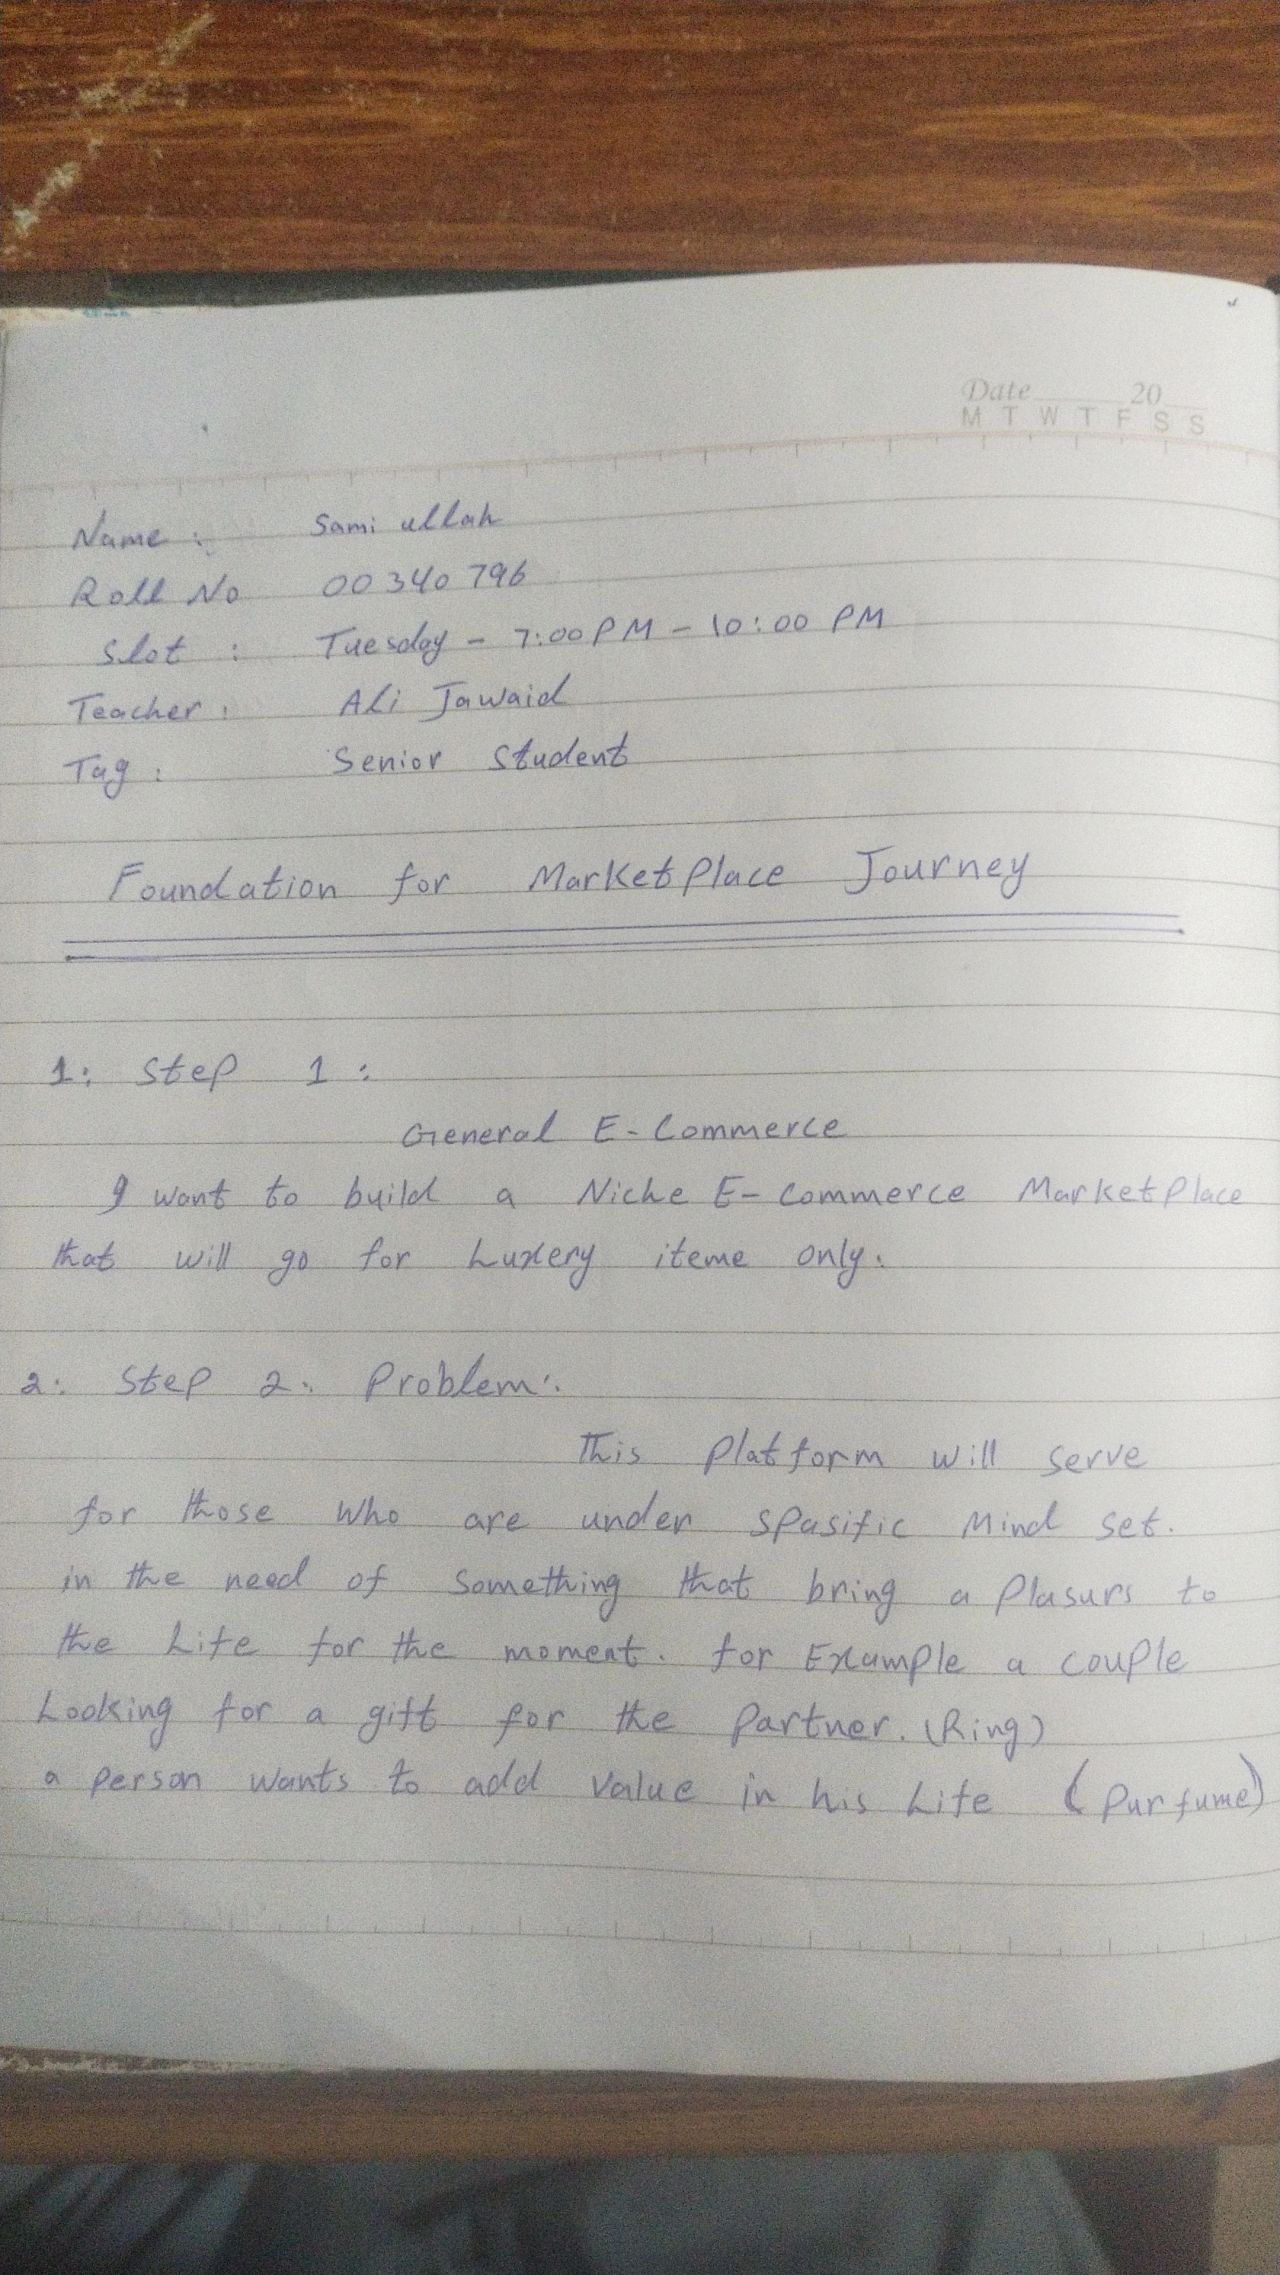 Date 20
M T W T F S S
Name : Sami ullah
Roll No 00340796
Slot : Tuesday - 7:00 PM - 10:00 PM
Teacher : Ali Jawaid
Tag : Senior Student
Foundation for MarketPlace Journey
1: Step 1 :
General E-Commerce
I want to build a Niche E-commerce MarketPlace
that will go for Luxery iteme only.
2: Step 2: Problem:
This Platform will serve
for those who are under spasific Mind set.
in the need of something that bring a Plasurs to
the Life for the moment. for Example a couple
Looking for a gift for the Partner. (Ring)
a person wants to add value in his Life (Purfume)